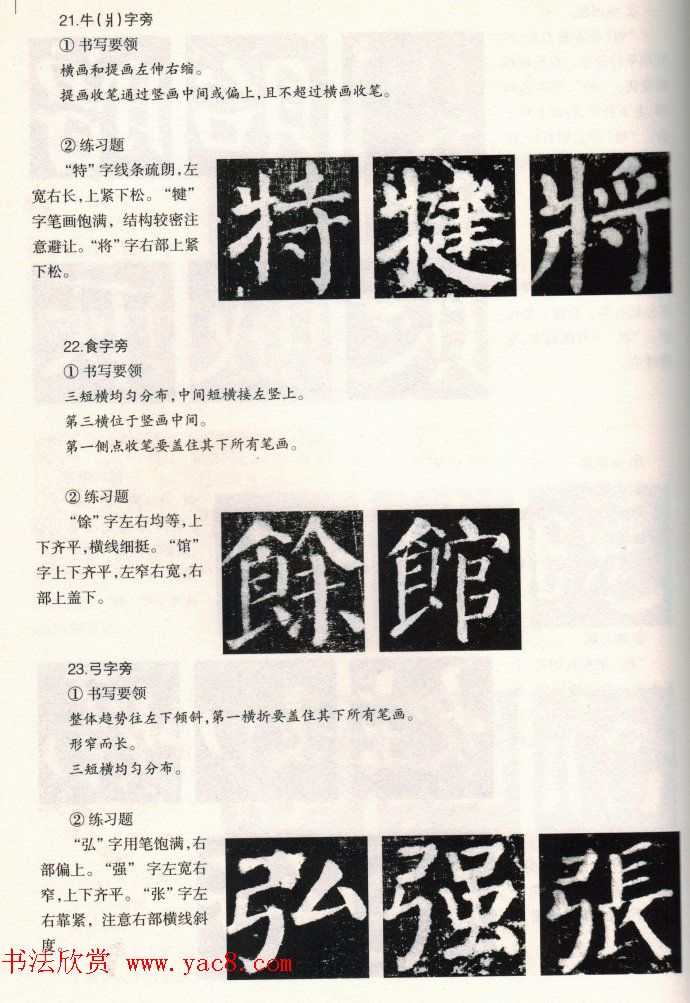 21.牛(丬)字旁
①书写要领
横画和提画左伸右缩。
提画收笔通过竖画中间或偏上,且不超过横画收笔。
②练习题
“特”字线条疏朗,左
宽右长,上紧下松。“犍”
字笔画饱满,结构较密注
意避让。“将”字右部上紧
下松。
特 犍 將
22.食字旁
①书写要领
三短横均匀分布,中间短横接左竖上。
第三横位于竖画中间。
第一侧点收笔要盖住其下所有笔画。
②练习题
“馀”字左右均等,上
下齐平,横线细挺。“馆”
字上下齐平,左窄右宽,右
部上盖下。
餘 館
23.弓字旁
①书写要领
整体趋势往左下倾斜,第一横折要盖住其下所有笔画。
形窄而长。
三短横均匀分布。
②练习题
“弘”字用笔饱满,右
部偏上。“强”字左宽右
窄,上下齐平。“张”字左
右靠紧,注意右部横线斜
度。
弘 强 張
书法欣赏 www.yac8.com